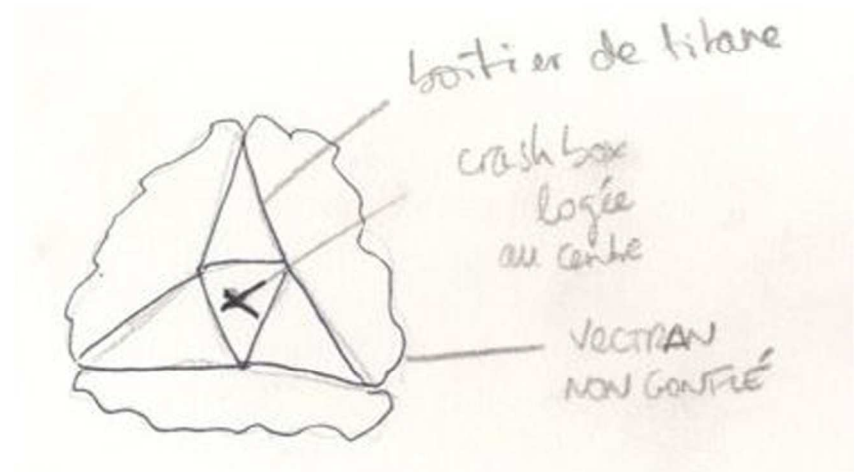 boîtier de titane
crash box
logée
au centre
VECTRAN
NON GONFLÉ